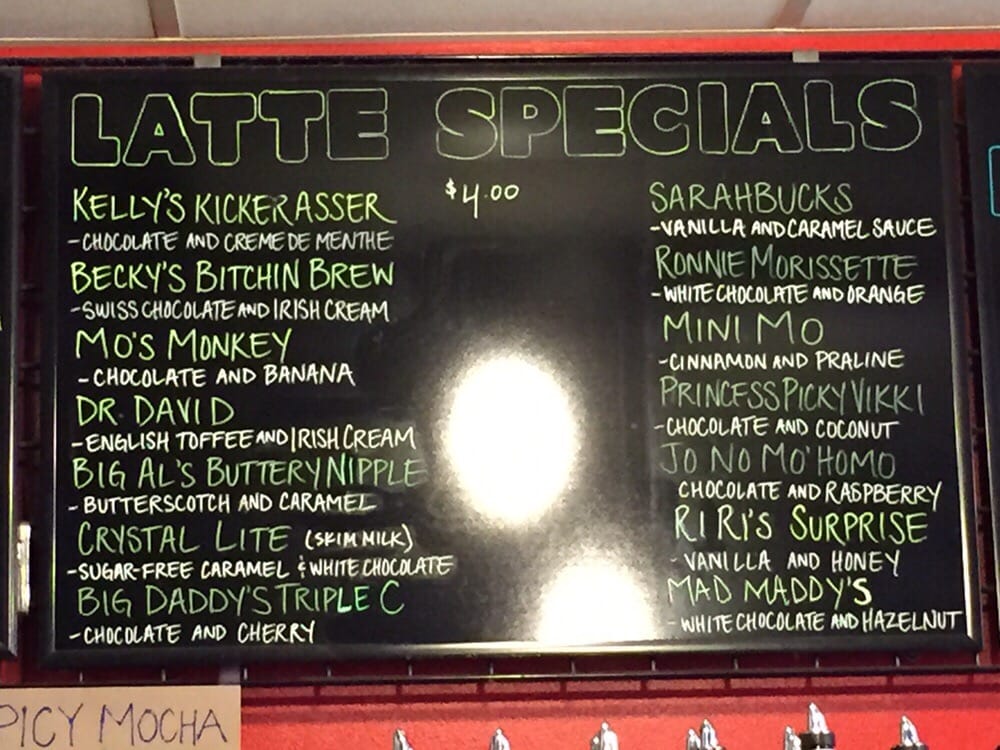 LATTE SPECIALS
$4.00
KELLY'S KICKER ASSER
-CHOCOLATE AND CREME DE MENTHE
BECKY'S BITCHIN BREW
-SWISS CHOCOLATE AND IRISH CREAM
MO'S MONKEY
-CHOCOLATE AND BANANA
DR. DAVID
-ENGLISH TOFFEE AND IRISH CREAM
BIG AL'S BUTTERY NIPPLE
-BUTTERSCOTCH AND CARAMEL
CRYSTAL LITE (SKIM MILK)
-SUGAR-FREE CARAMEL & WHITE CHOCOLATE
BIG DADDY'S TRIPLE C
-CHOCOLATE AND CHERRY
SARAHBUCKS
-VANILLA AND CARAMEL SAUCE
RONNIE MORISSETTE
-WHITE CHOCOLATE AND ORANGE
MINI MO
-CINNAMON AND PRALINE
PRINCESS PICKY VIKKI
-CHOCOLATE AND COCONUT
JO NO MO' HOMO
CHOCOLATE AND RASPBERRY
RIRI'S SURPRISE
-VANILLA AND HONEY
MAD MADDY'S
-WHITE CHOCOLATE AND HAZELNUT
PICY MOCHA